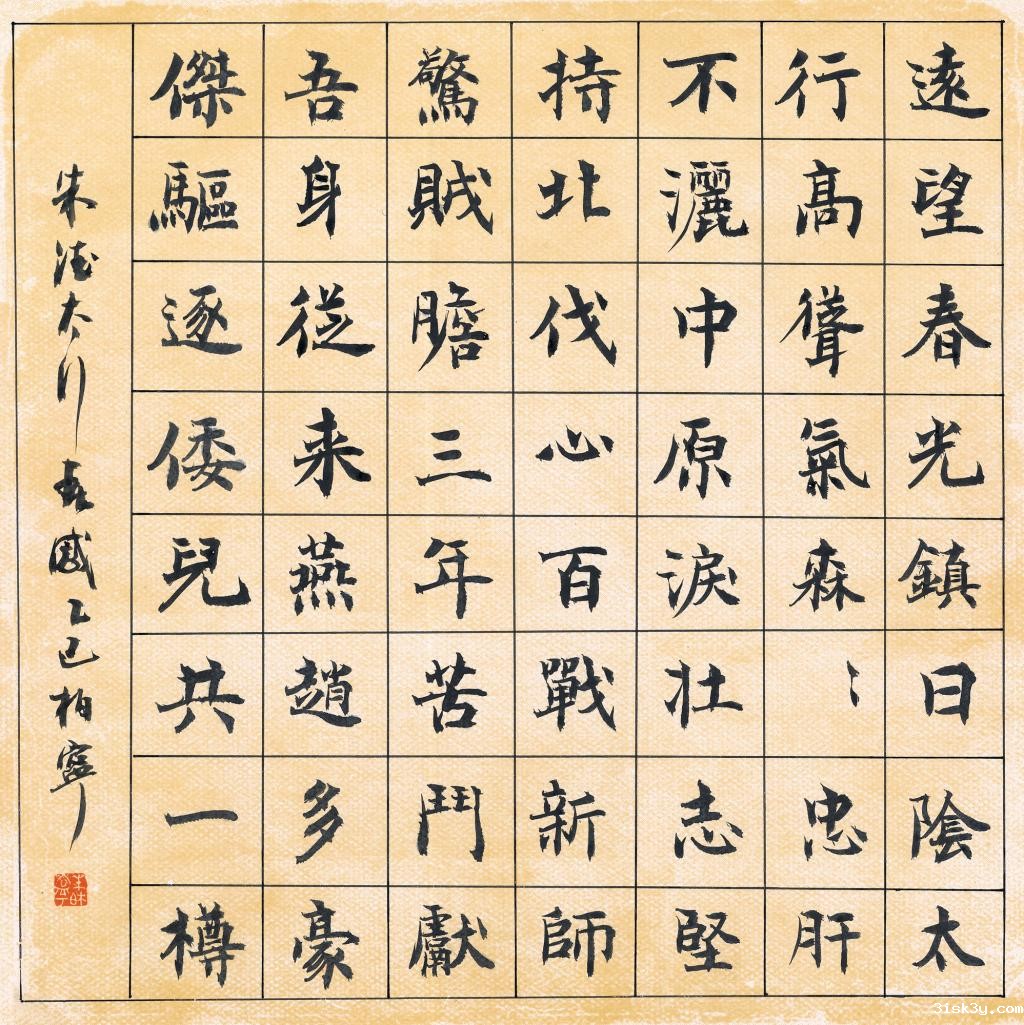 遠望春光鎮日陰太
行高聳氣森〻忠肝
不灑中原淚壯志堅
持北伐心百戰新師
驚賊膽三年苦鬥獻
吾身從来燕趙多豪
傑驅逐倭兒共一樽
朱德太行春感乙巳柏寧